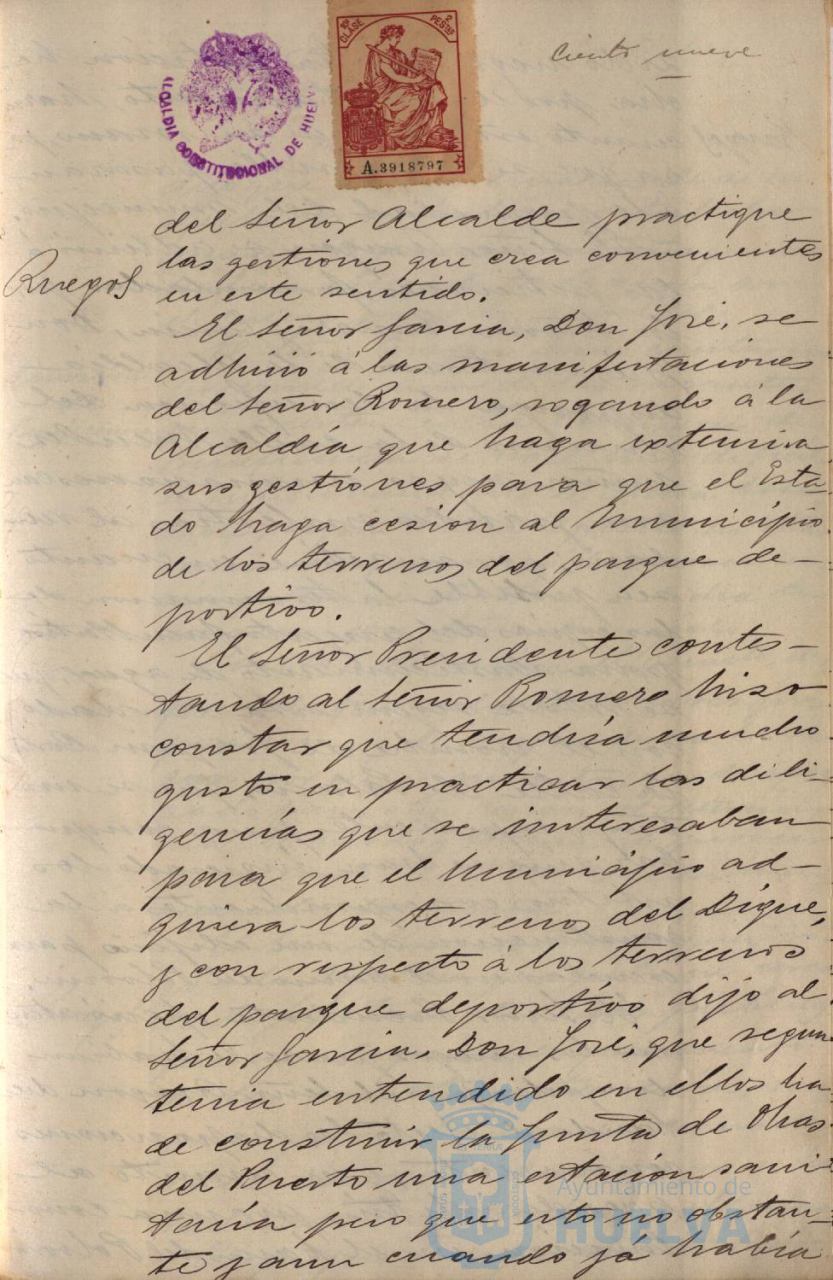 ciento nueve
10ª CLASE 2 PESETAS
A.3918797
ALCALDIA CONSTITUCIONAL DE HUELVA
Ruegos
del Señor Alcalde practique
las gestiones que crea convenientes
en este sentido.
El Señor Garcia, Don José, se
adhirió á las manifestaciones
del Señor Romero, rogando á la
Alcaldía que haga extensiva
sus gestiones para que el Esta-
do haga cesion al Municipio
de los terrenos del parque de-
portivo.
El Señor Presidente contes-
tando al Señor Romero hizo
constar que tendría mucho
gusto en practicar las dili-
gencias que se interesaban
para que el Municipio ad-
quiera los terrenos del Dique,
y con respecto á los terrenos
del parque deportivo dijo al
Señor Garcia, Don José, que segun
tenia entendido en ellos ha
de construir la Junta de Obras
del Puerto una estacion sani-
taria pero que esto no obstan-
te y aun cuando yá había
Ayuntamiento de
HUELVA